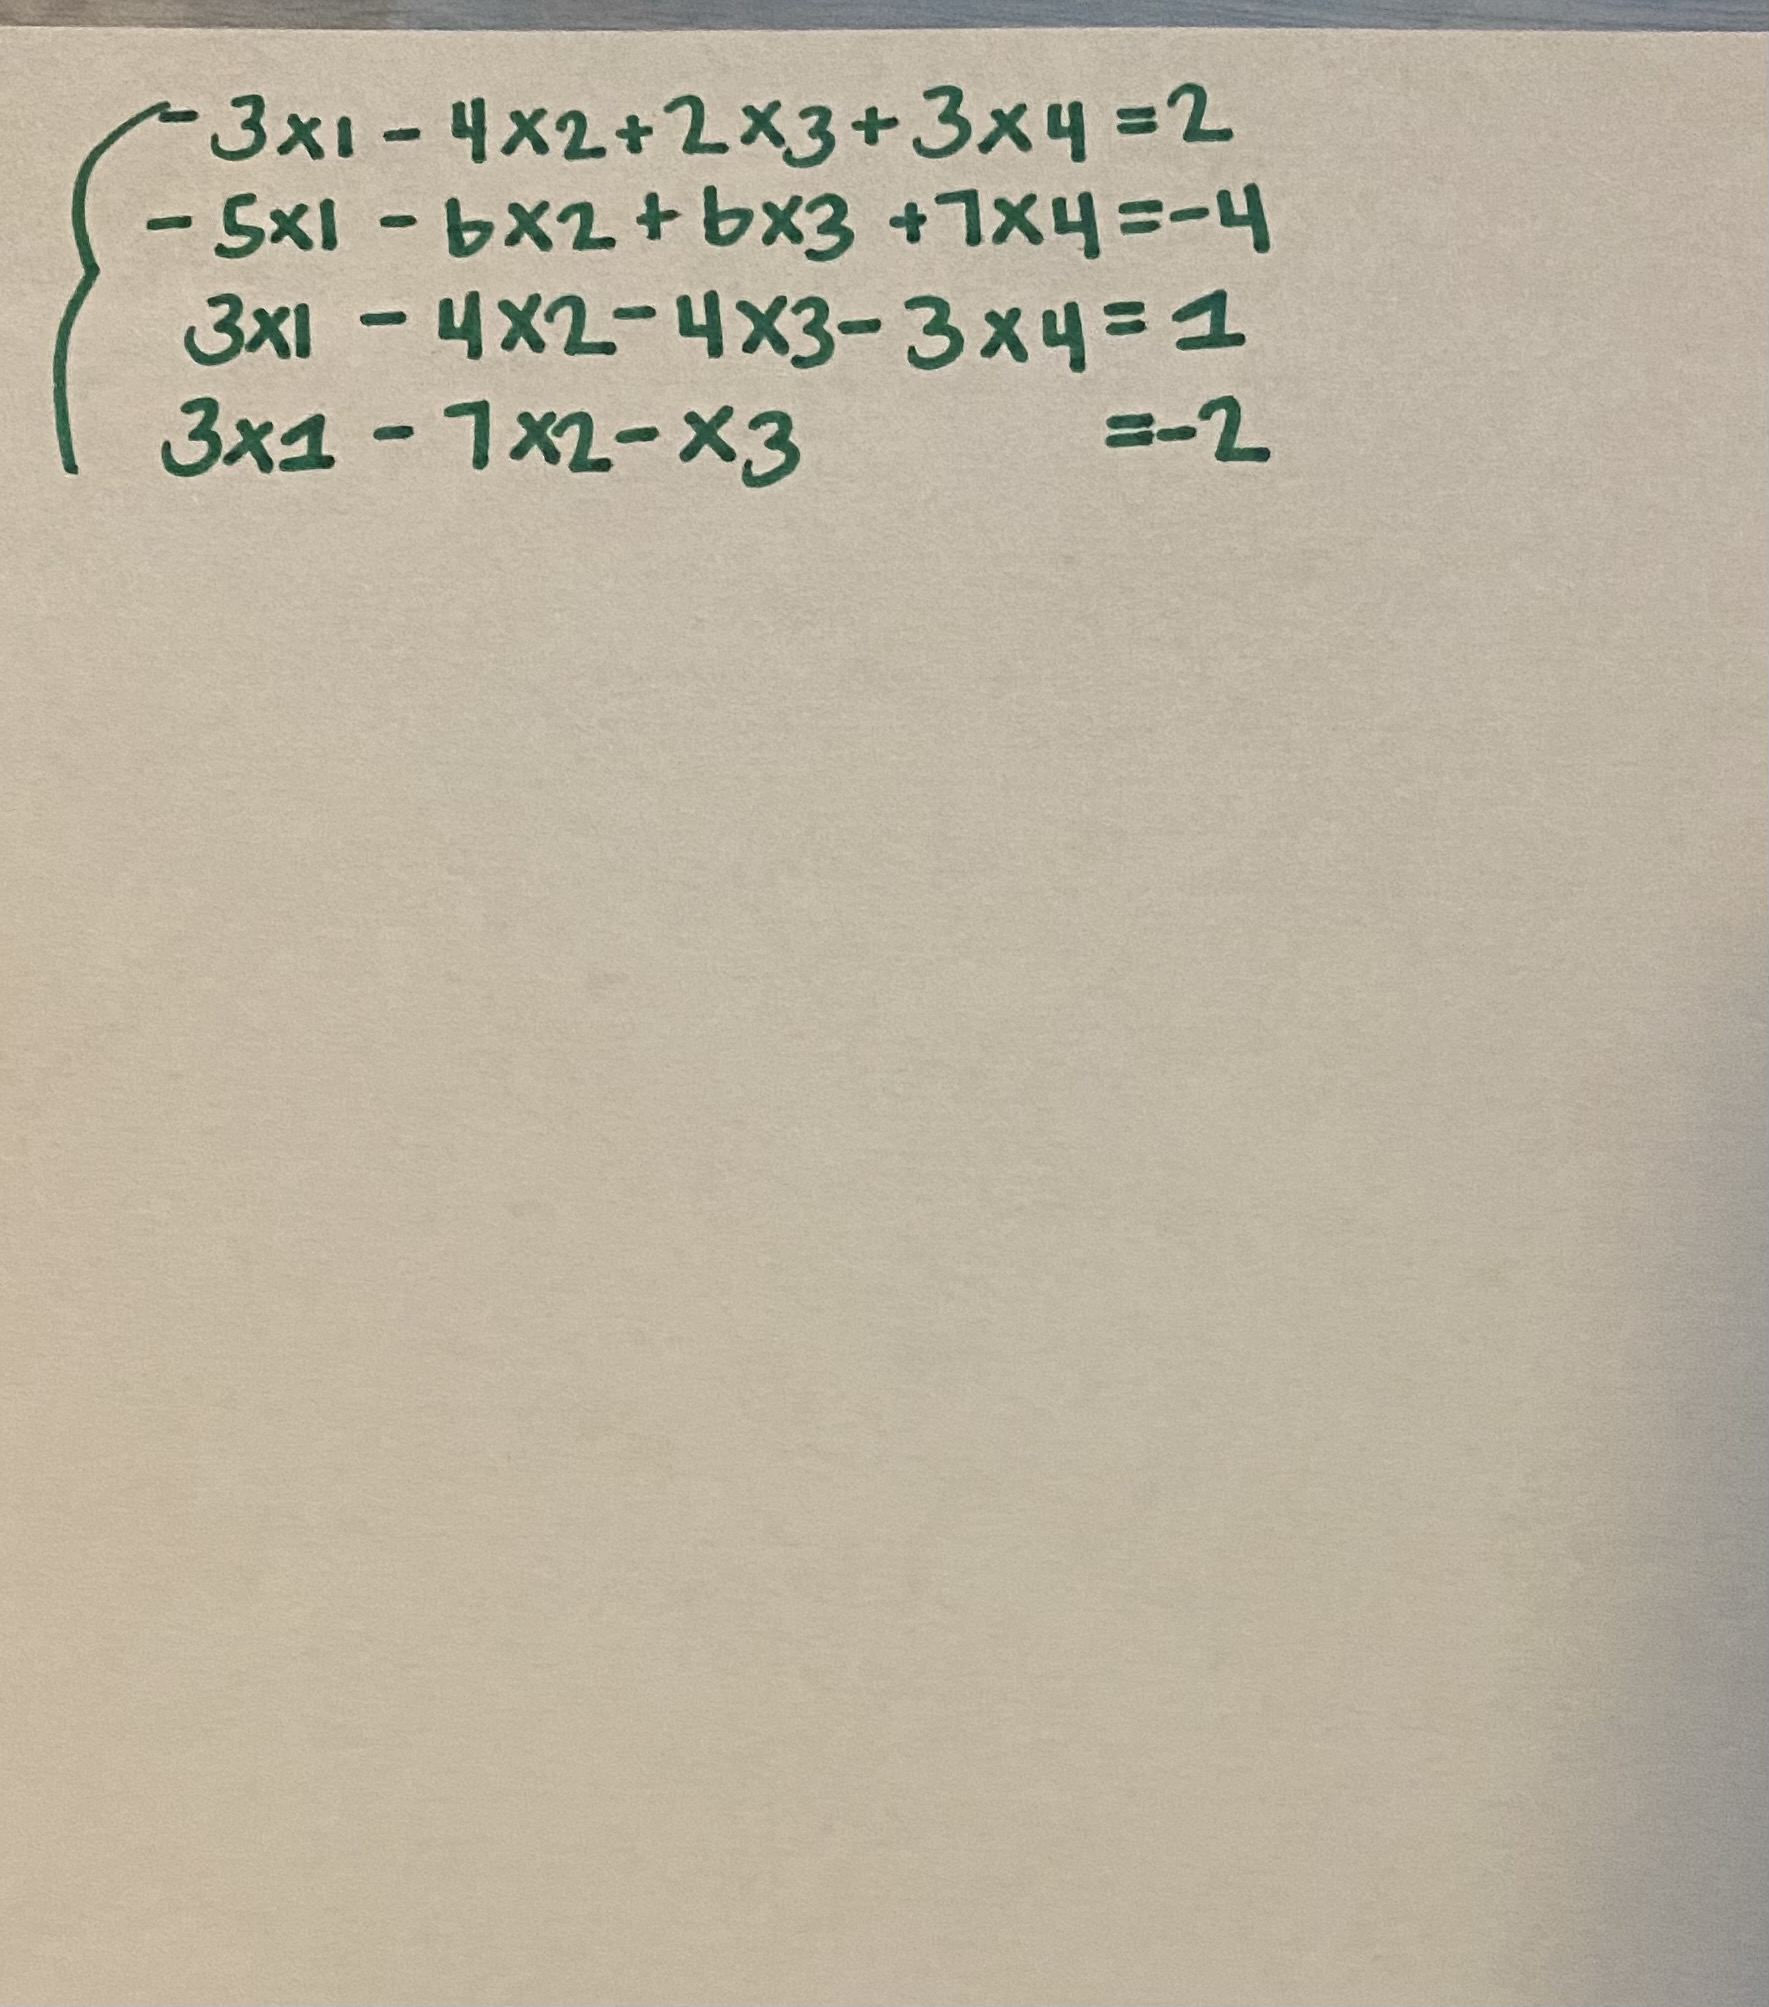 -3x1 - 4x2 + 2x3 + 3x4 = 2
-5x1 - 6x2 + 6x3 + 7x4 = -4
3x1 - 4x2 - 4x3 - 3x4 = 1
3x1 - 7x2 - x3 = -2